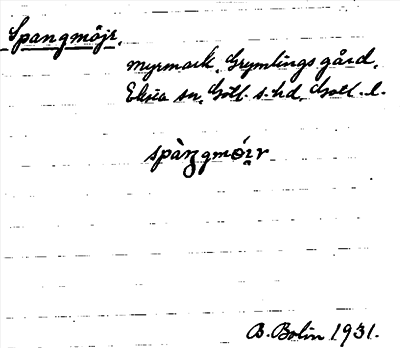 Spangmöjr.
myrmark, Grymlings gård,
Eksta sn, Gotl. s. hd, Gotl. l.
spàŋgmóır
B. Bolin 1931.